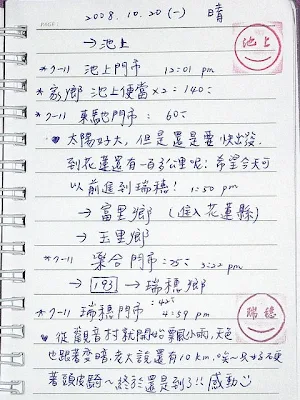 2008.10.20 (一) 晴
→池上
池上
*7-11 池上門市 12:01 pm
*家鄉池上便當×2=140-
*7-11 東馳門市: 60-
♥太陽好大,但是還是要快出發.
到花蓮還有一百多公里呢!希望今天可
以前進到瑞穗! 1:50 pm
→富里鄉 (進入花蓮縣)
→玉里鄉
*7-11 樂合門市:25- 3:22 pm
→193→瑞穗鄉
瑞穗
*7-11 瑞穗門市:42- 4:59 pm
♥從觀音村就開始飄小雨,天色
也跟著變暗.老大說還有10km.
著頭皮騎~終於還是到了!!感動